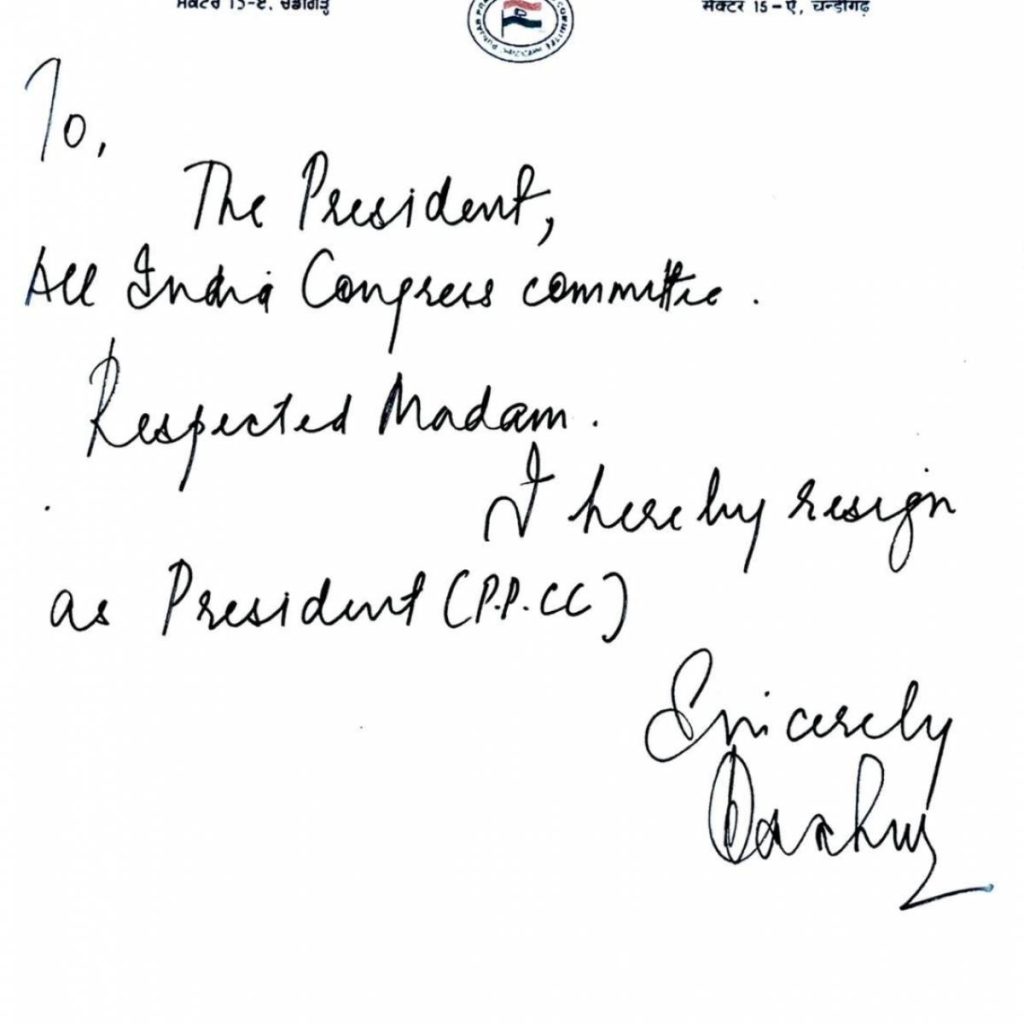 ਸੈਕਟਰ 15-ਏ, ਚੰਡੀਗੜ੍ਹ
सेक्टर 15-ऐ, चन्डीगढ़
To,
The President,
All India Congress committee.
Respected Madam.
I hereby resign
as President (P.P.CC)
Sincerely